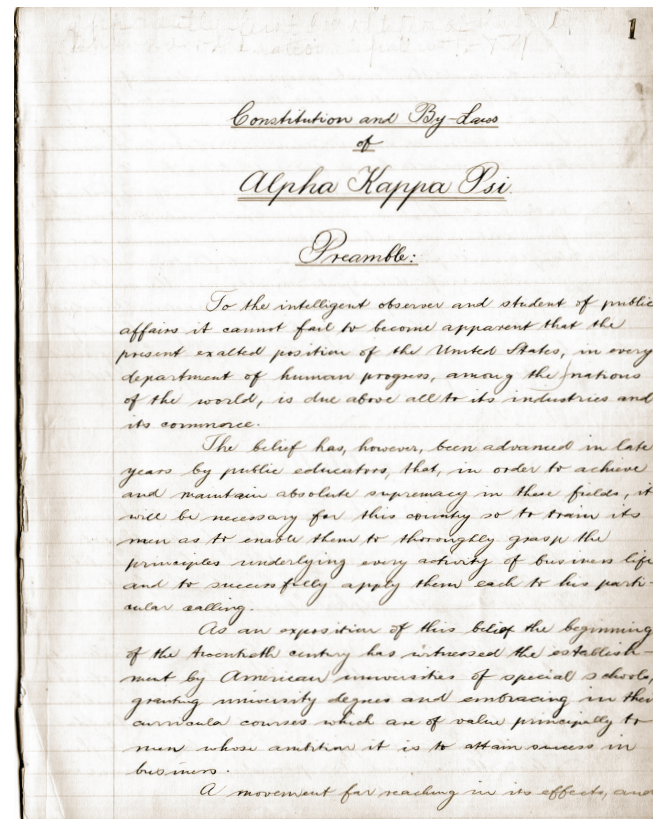 1
Constitution and By-Laws
of
Alpha Kappa Psi
Preamble:
To the intelligent observer and student of public
affairs it cannot fail to become apparent that the
present exalted position of the United States, in every
department of human progress, among the nations
of the world, is due above all to its industries and
its commerce.
The belief has, however, been advanced in late
years by public educators, that, in order to achieve
and maintain absolute supremacy in these fields, it
will be necessary for this country so to train its
men as to enable them to thoroughly grasp the
principles underlying every activity of business life
and to successfully apply them each to his parti-
cular calling.
As an exposition of this belief the beginning
of the twentieth century has witnessed the establish-
ment by American universities of special schools,
granting university degrees and embracing in their
curricula courses which are of value principally to
men whose ambition it is to attain success in
business.
A movement far reaching in its effects, and